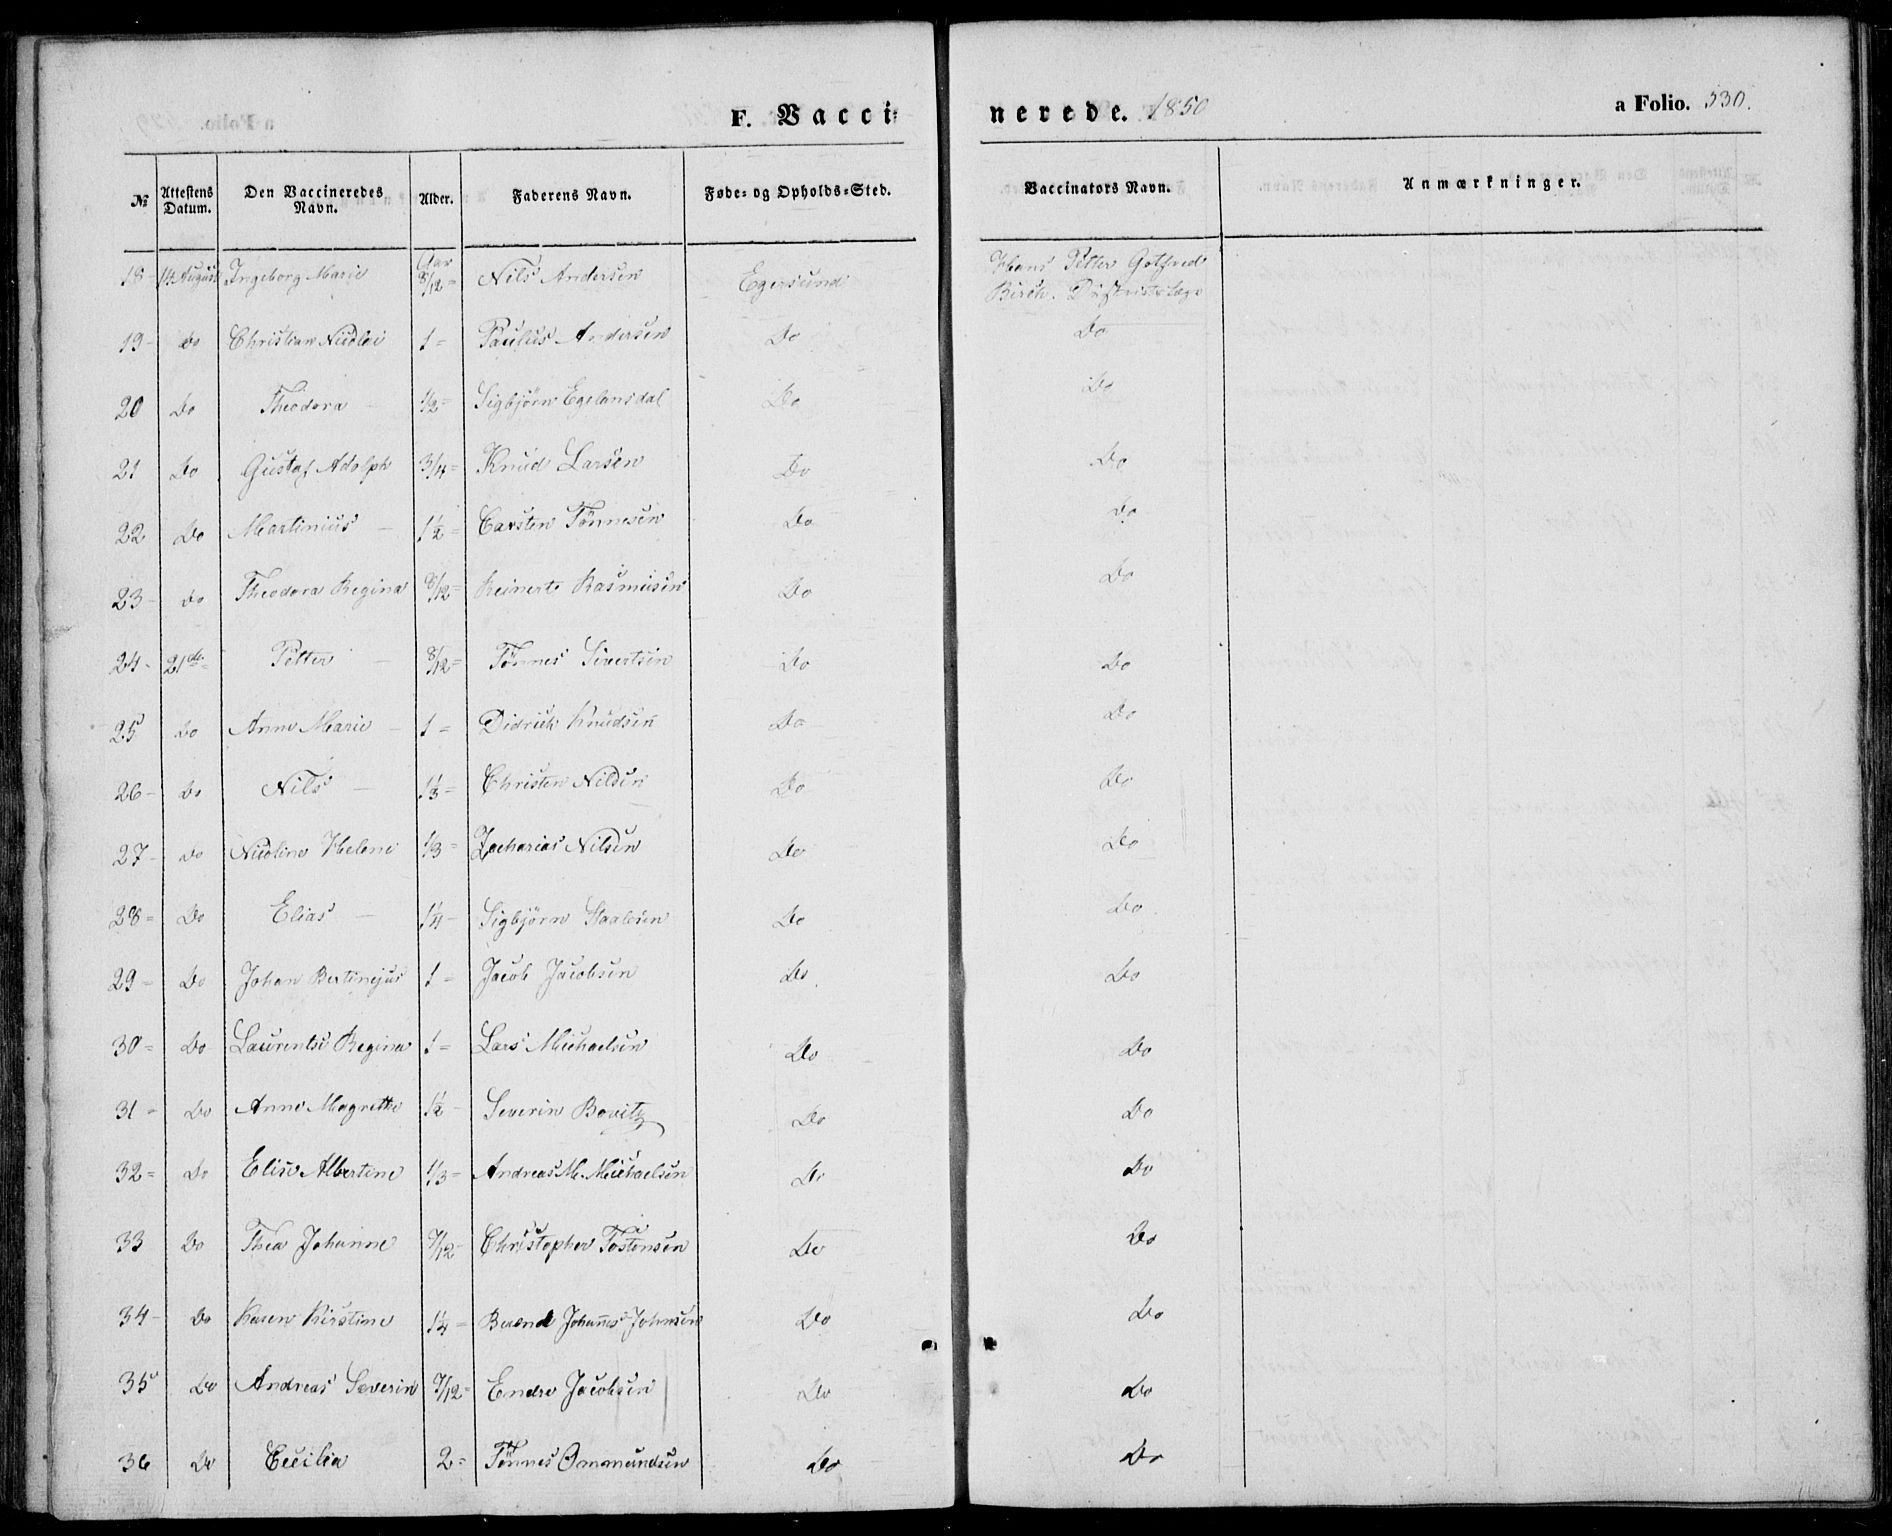 F. Vacci- nerede. 1850 a Folio. 530.
№ Attestens Datum. Den Vaccineredes Navn. Alder. Faderens Navn. Føde- og Opholds-Sted. Vaccinators Navn. Anmærkninger.
18 - 14 August Ingeborg Marie Aar 8/12 = Nils Andersen Egersund Hans Petter Gotfred
Birch. Distriktslæge
19 - Do Christian Nicolai 1 = Paulus Andersen Do Do
20 Do Theodora - 1/2 = Sigbjörn Egelansdal Do Do
21 Do Gustaf Adolph 3/4 = Knud Larsen Do Do
22 Do Martinius - 1 1/2 = Carsten Tönnesen Do Do
23 - Do Theodora Regina 8/12 = Reinert Rasmusen Do Do
24 - 21de Petter - 8/12 = Tönnes Sivertsen Do Do
25 Do Anne Marie - 1 = Didrich Knudsen Do Do
26 - Do Nils - 1 1/3 = Christen Nilsen Do Do
27 - Do Nicoline Helene 1/3 = Zacharias Nilsen Do Do
28 = Do Elias - 1 1/4 - Sigbjörn Staalesen Do Do
29 = Do Johan Bertinejus 1 = Jacob Jacobsen Do Do
30 = Do Laurentse Regine 1 = Lars Michaelsen Do Do
31 - Do Anne Magrethe 1 1/2 - Severin Bovitz Do Do
32 = Do Elise Albertine 1/3 = Andreas M. Michaelsen Do Do
33 Do Thea Johanne 9/12 - Christopher Tostensen Do Do
34 - Do Karen Kirstine 1 1/4 = Berend Johannes Johnsen Do Do
35 Do Andreas Severin 9/12 = Endre Jacobsen Do Do
36 Do Cecilia 2 = Tönnes Ommundsen Do Do